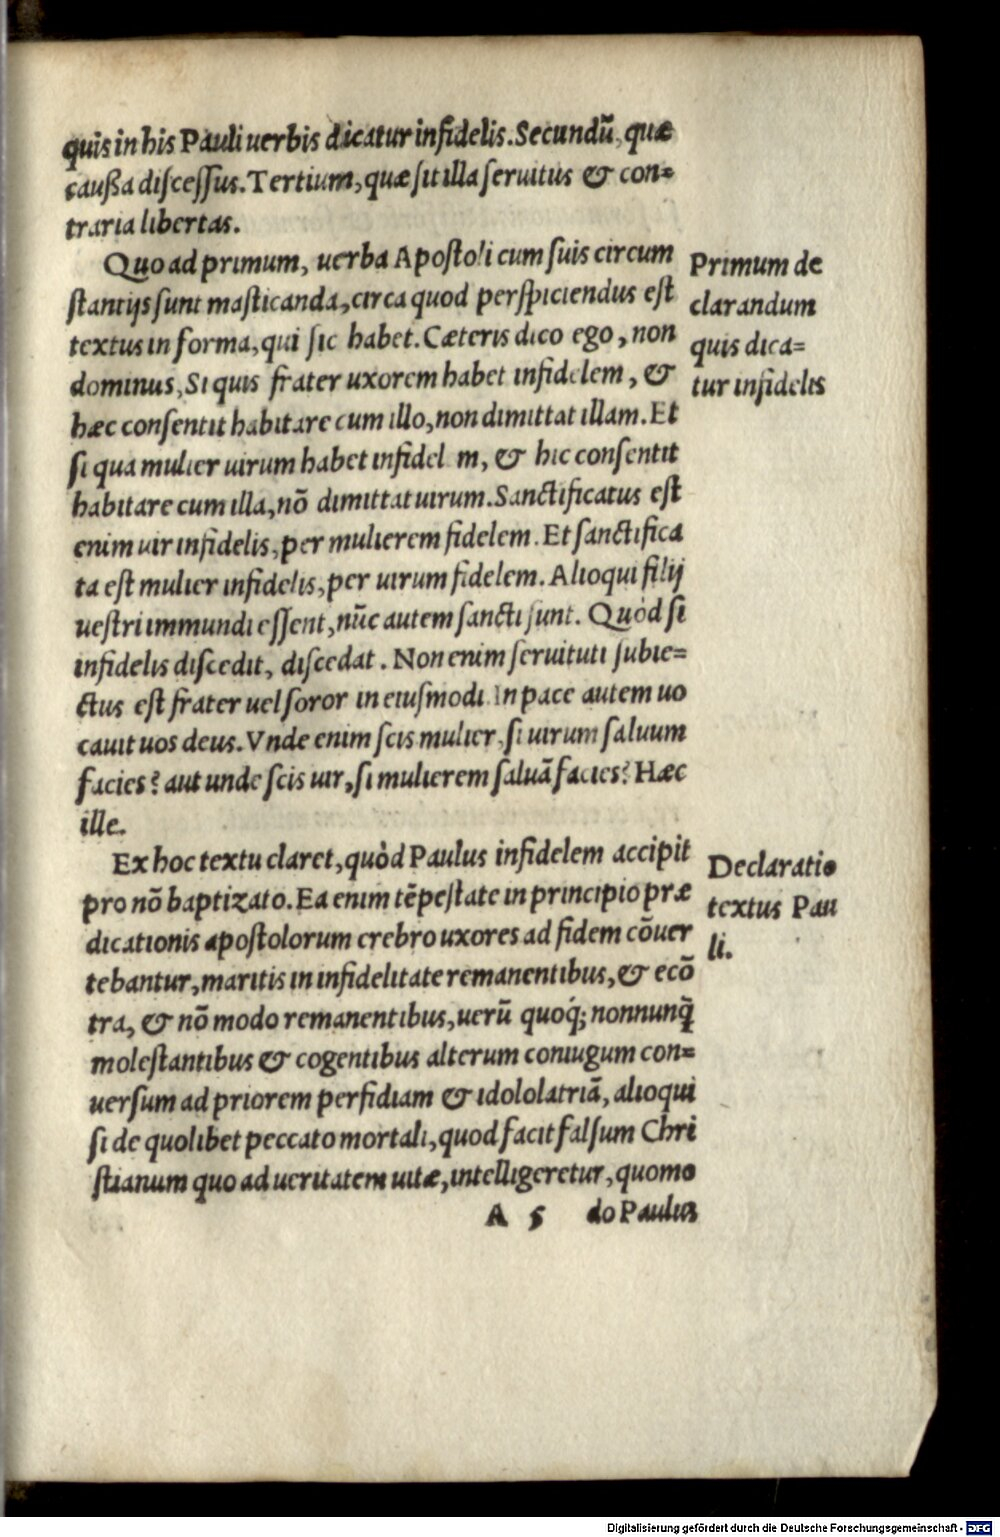 quis in his Pauli uerbis dicatur infidelis. Secundū, quæ
caußa discessus. Tertium, quæ sit illa seruitus & con=
traria libertas.
Quo ad primum, uerba Apostoli cum suis circum
stantijs sunt masticanda, circa quod perspiciendus est
textus in forma, qui sic habet. Cæteris dico ego, non
dominus, Si quis frater uxorem habet infidelem, &
hæc consentit habitare cum illo, non dimittat illam. Et
si qua mulier uirum habet infidel m, & hic consentit
habitare cum illa, nō dimittat uirum. Sanctificatus est
enim uir infidelis, per mulierem fidelem. Et sanctifica
ta est mulier infidelis, per uirum fidelem. Alioqui filij
uestri immundi essent, nūc autem sancti sunt. Quòd si
infidelis discedit, discedat. Non enim seruituti subie=
ctus est frater uel soror in eiusmodi. In pace autem uo
cauit uos deus. Vnde enim scis mulier, si uirum saluum
facies? aut unde scis uir, si mulierem saluā facies? Hæc
ille.
Ex hoc textu claret, quòd Paulus infidelem accipit
pro nō baptizato. Ea enim tēpestate in principio præ
dicationis apostolorum crebro uxores ad fidem cōuer
tebantur, maritis in infidelitate remanentibus, & ecō
tra, & nō modo remanentibus, uerū quoq́; nonnunq̄
molestantibus & cogentibus alterum coniugum con=
uersum ad priorem perfidiam & idololatriā, alioqui
si de quolibet peccato mortali, quod facit falsum Chri
stianum quo ad ueritatem uitæ, intelligeretur, quomo
A 5 do Paulus
Primum de
clarandum
quis dica=
tur infidelis
Declaratio
textus Pau
li.
Digitalisierung gefördert durch die Deutsche Forschungsgemeinschaft - DFG